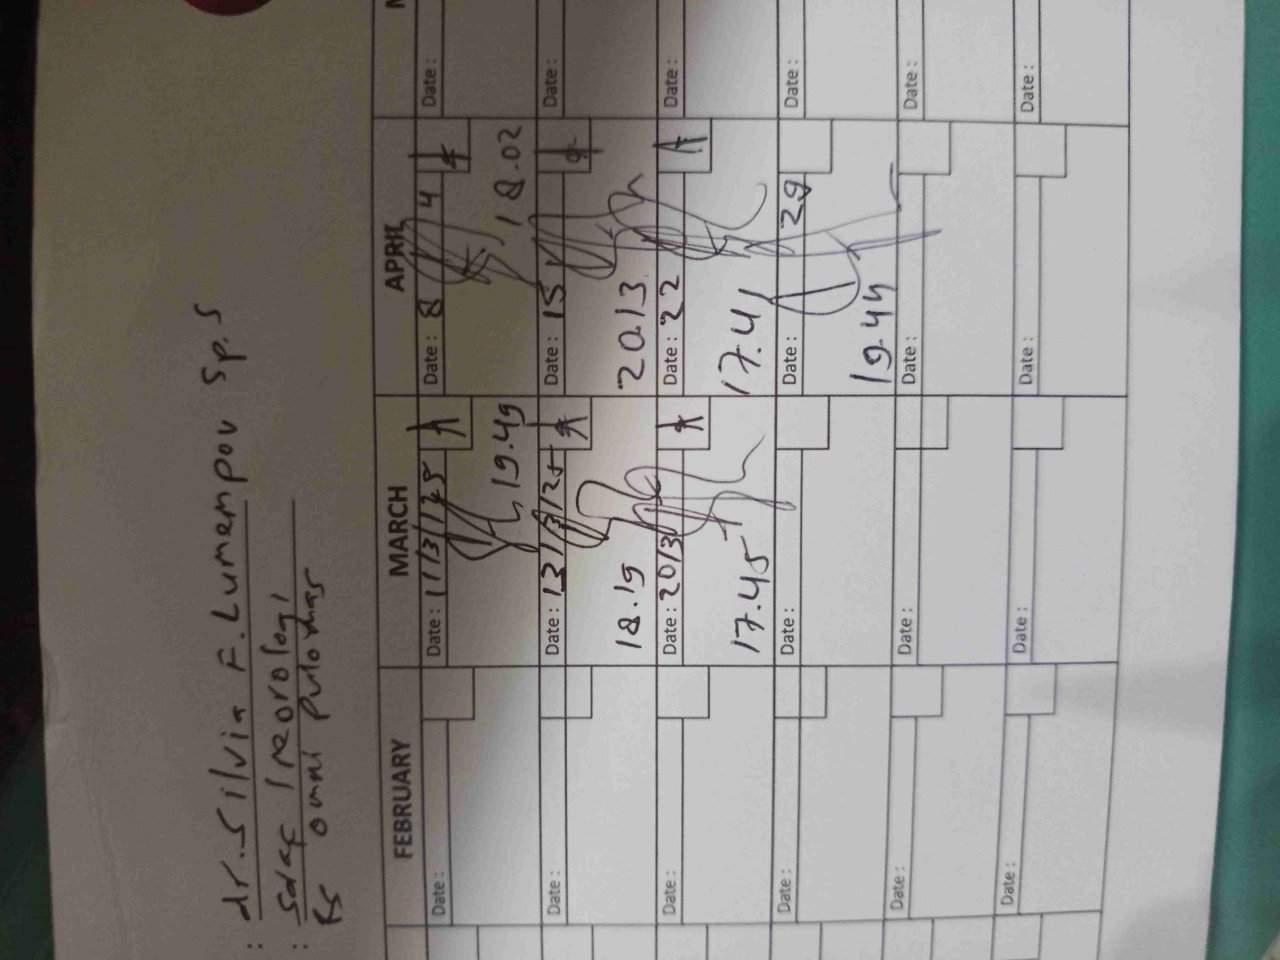 : dr. Silvia F. Lumempou Sp.S
: Saraf / neorologi
RS omni Pulomas
FEBRUARY
MARCH
APRIL
Date :
Date : 11/3/25
Date : 8 4
Date :
19.49
18.02
Date :
Date : 13/3/25
Date : 15
Date :
18.19
20.13
Date :
Date : 20/3
Date : 22
Date :
17.45
17.41
Date :
Date :
Date : 29
Date :
19.44
Date :
Date :
Date :
Date :
Date :
Date :
Date :
Date :